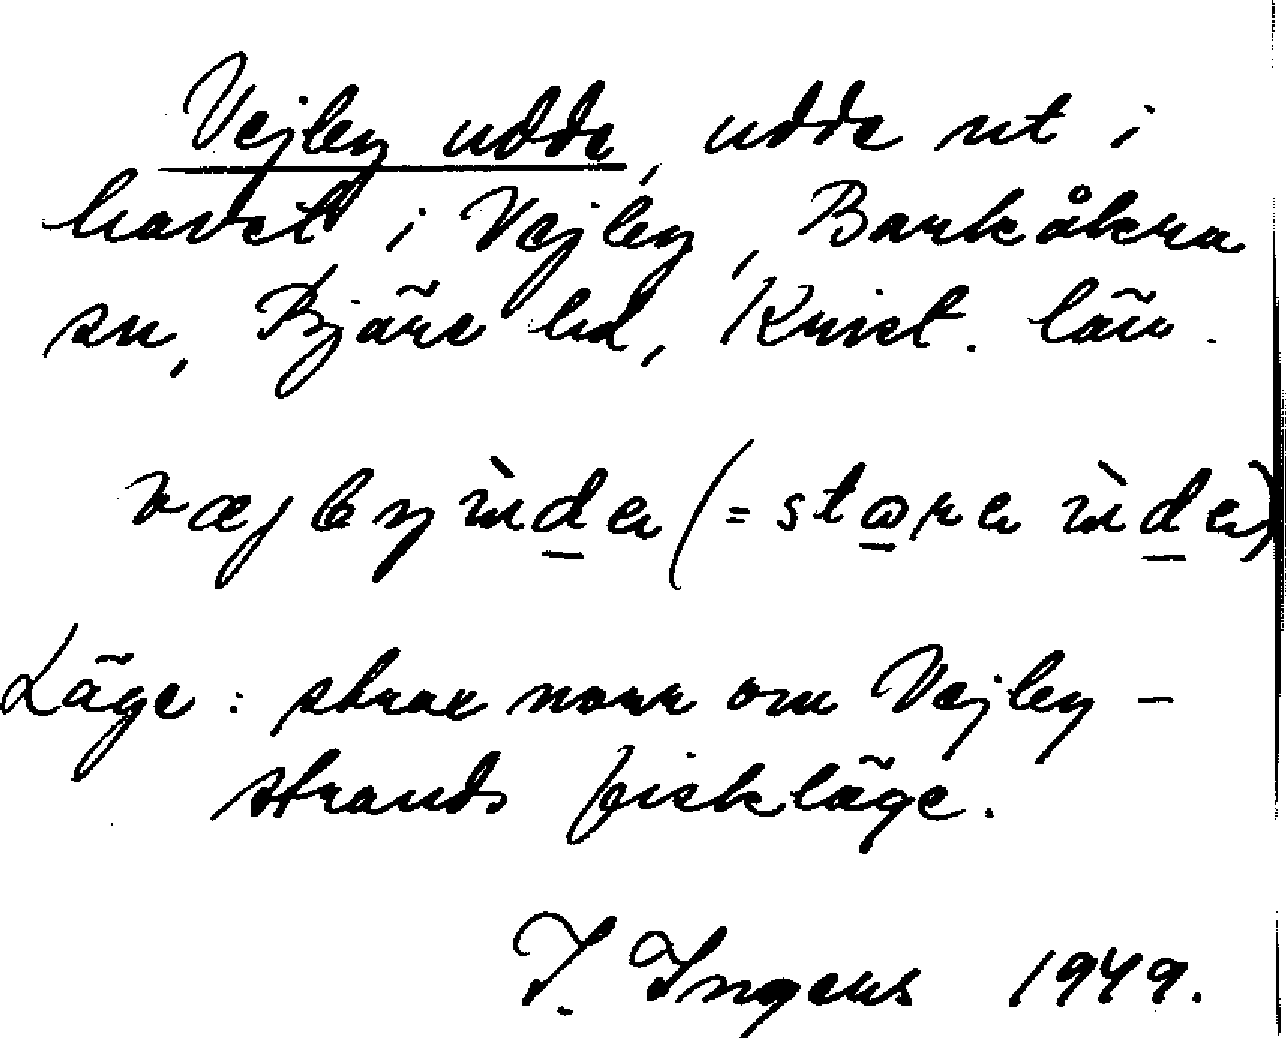 Vejby udde, udde ut i
havet i Vejby, Barkåkra
sn, Bjäre hd, Krist. län.
væjbyùder (= stɷrer ùder)
Läge: strax norr om Vejby-
strands fiskläge.
I. Ingers 1949.